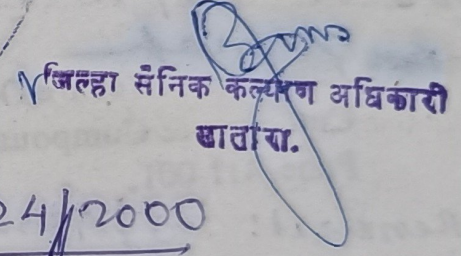 जिल्हा सैनिक कल्याण अधिकारी
सातारा.
24/2000